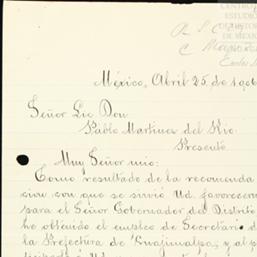 CENTRO
ESTUDIO
DE HISTOR
DE MÉXICO
México, Abril 25 de 190
Señor Lic Don
Pablo Martinez del Rio
Presente
Muy Señor mio:
Como resultado de la recomenda
cion con que se sirvió Ud. favorecerme
para el Señor Gobernador del Distrito
he obtenido el empleo de Secretario d
la Prefectura de Cuajimalpa, y al p